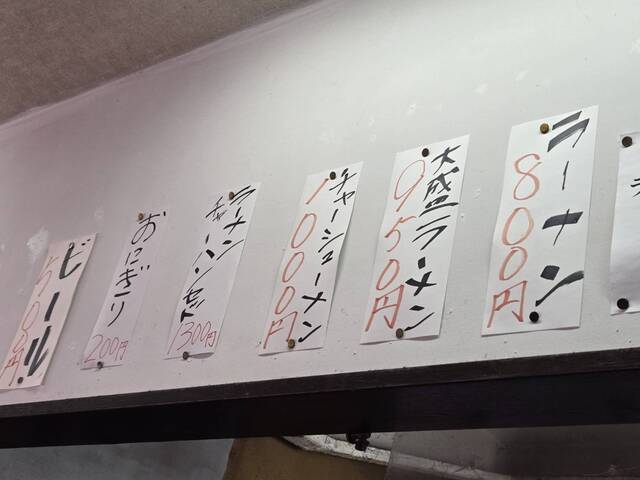 ラーメン
800円
大盛ラーメン
950円
チャーシューメン
1000円
ラーメン
チャーハンセット
1300円
おにぎり
200円
ビール
500円